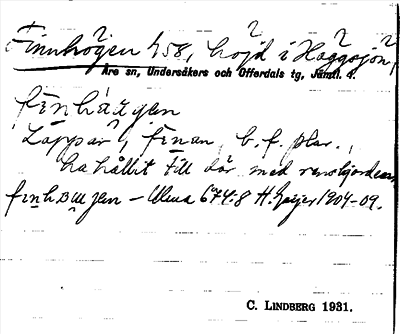 Finnhögen 458, höjd i Häggsjön,
Åre sn, Undersåkers och Offerdals tg, Jämtl. l.
finhǻɡen
Lappar, finan, b. f. plur.,
ha hållit till där med renhjordarna
finh. – Ulma 674:8 H. Geijer 1904-09.
C. LINDBERG 1931.